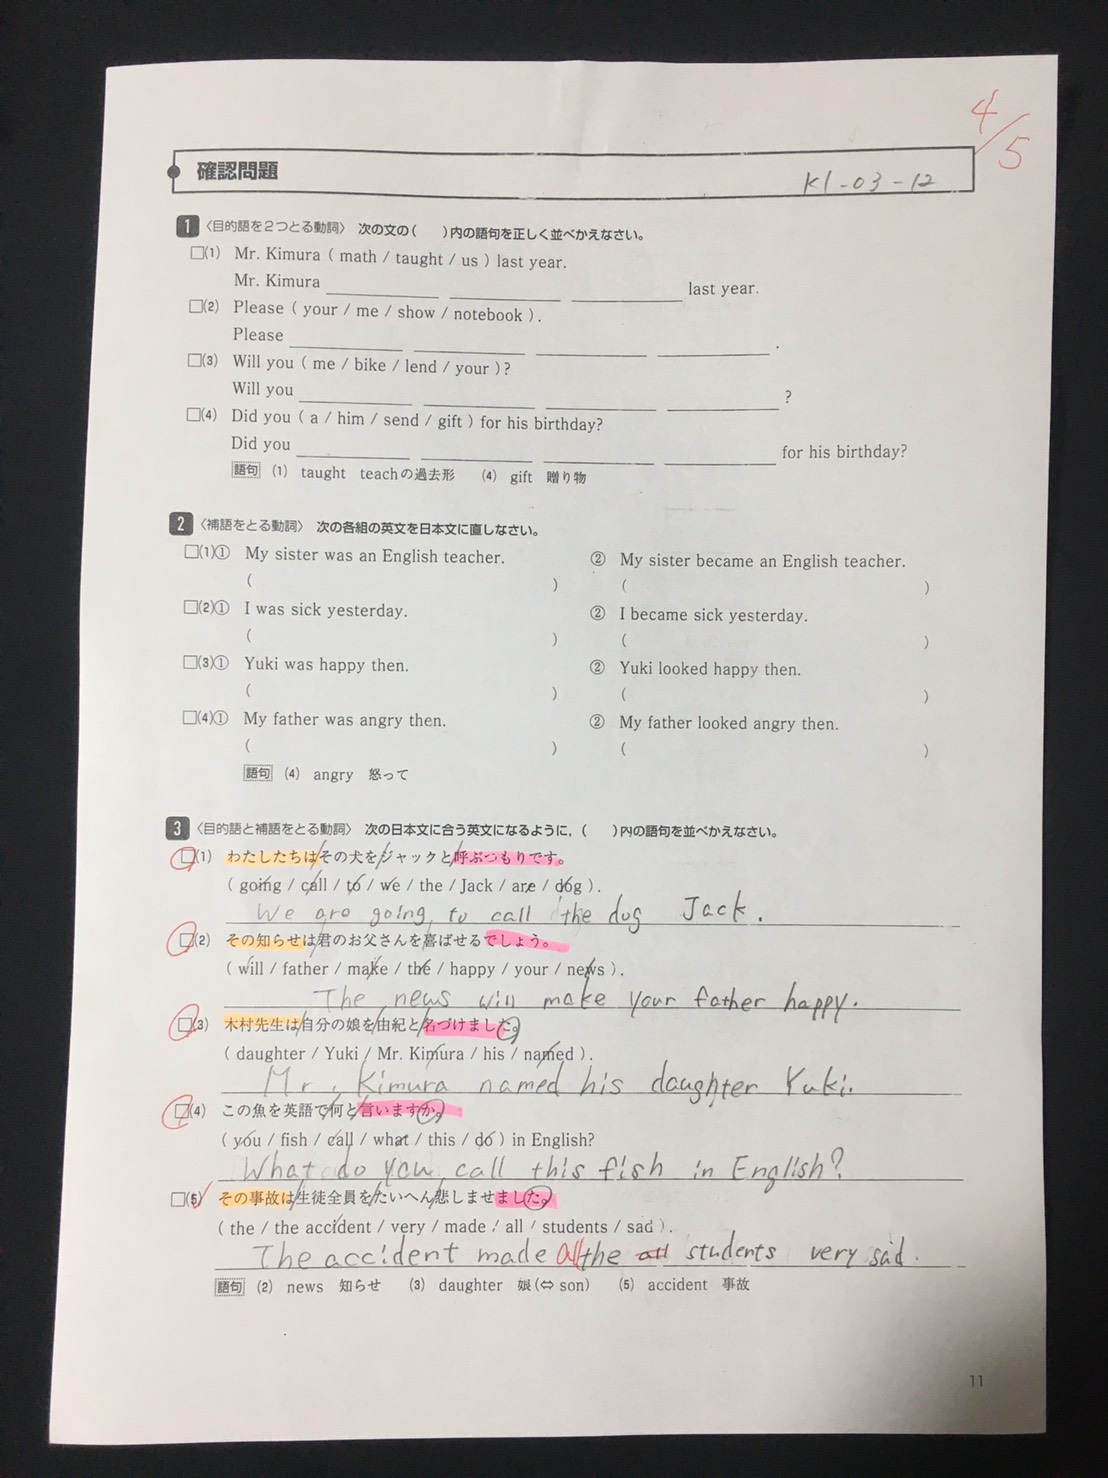 4/5
確認問題
K1-03-12
1 〈目的語を2つとる動詞〉 次の文の( )内の語句を正しく並べかえなさい。
□(1) Mr. Kimura ( math / taught / us ) last year.
Mr. Kimura ______ ______ ______ last year.
□(2) Please ( your / me / show / notebook ).
Please ______ ______ ______ ______ .
□(3) Will you ( me / bike / lend / your )?
Will you ______ ______ ______ ______ ?
□(4) Did you ( a / him / send / gift ) for his birthday?
Did you ______ ______ ______ ______ for his birthday?
語句 (1) taught teachの過去形 (4) gift 贈り物
2 〈補語をとる動詞〉 次の各組の英文を日本文に直しなさい。
□(1)① My sister was an English teacher. ② My sister became an English teacher.
( ) ( )
□(2)① I was sick yesterday. ② I became sick yesterday.
( ) ( )
□(3)① Yuki was happy then. ② Yuki looked happy then.
( ) ( )
□(4)① My father was angry then. ② My father looked angry then.
( ) ( )
語句 (4) angry 怒って
3 〈目的語と補語をとる動詞〉 次の日本文に合う英文になるように,( )内の語句を並べかえなさい。
□(1) わたしたちは/その犬を/ジャックと/呼ぶつもりです。
( going / call / to / we / the / Jack / are / dog ).
We are going to call the dog Jack.
□(2) その知らせは/君のお父さんを/喜ばせるでしょう。
( will / father / make / the / happy / your / news ).
The news will make your father happy.
□(3) 木村先生は/自分の娘を/由紀と/名づけました。
( daughter / Yuki / Mr. Kimura / his / named ).
Mr. Kimura named his daughter Yuki.
□(4) この魚を英語で/何と/言いますか。
( you / fish / call / what / this / do ) in English?
What do you call this fish in English?
□(5) その事故は/生徒全員を/たいへん/悲しませました。
( the / the accident / very / made / all / students / sad ).
The accident made all the all students very sad.
語句 (2) news 知らせ (3) daughter 娘(⇔ son) (5) accident 事故
11